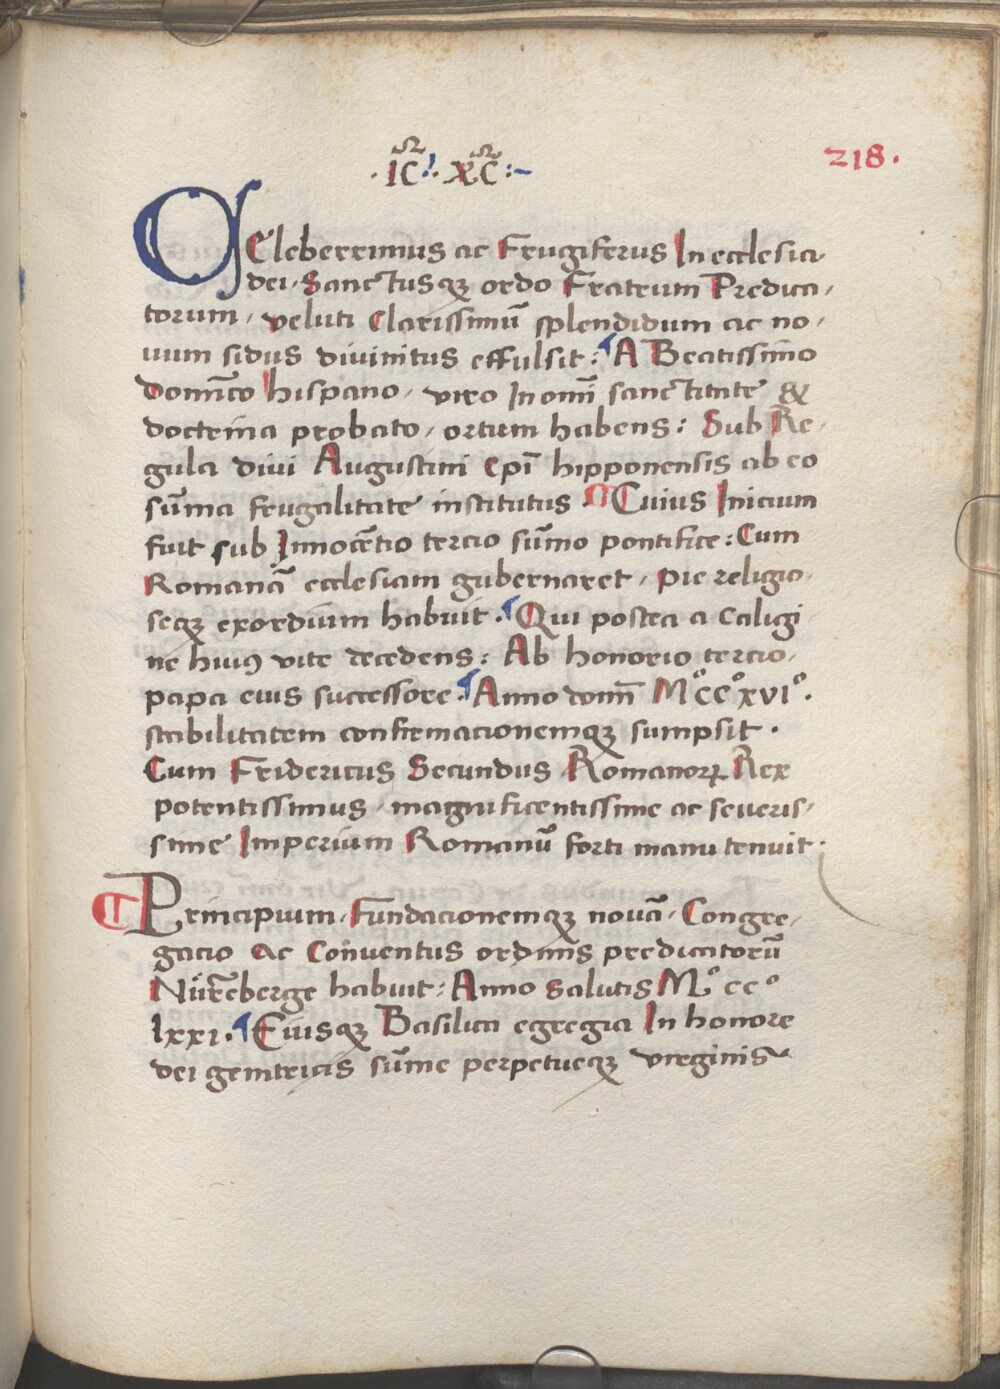 · IC̄ ! · XC̄ :~
218 ·
CEleberrimus ac Frugiferus In ecclesia
dei · Sanctusqꝫ ordo Fratrum Predica ,
torum , veluti Clarissimū splendidum ac no ,
uum sidus diuinitus effulsit : ¶ A Beatissimo
Domīco hispano , viro In omī sanctitate &
doctrina probato , ortum habens : Sub Re ,
gula diui Augustini Epī hipponensis ab eo
sūma frugalitate institutus ¶ Cuius Inicium
fuit sub Innocētio tercio sūmo pontifice : Cum
Romanā ecclesiam gubernaret , pie religio ,
seqꝫ exordium habuit . ¶ Qui postea a Caligi
ne huiꝰ vite decedens : Ab honorio tercio ,
papa eius successore . ¶ Anno domī Mº CCº XVIº .
stabilitatem confirmacionemqꝫ sumpsit .
Cum Fridericus Secundus Romanoꝝ Rex
potentissimus , magnificentissime ac seueris ,
sime Imperium Romanū forti manu tenuit .
¶ Principium , Fundacionemqꝫ nouā , Congre ,
gacio Ac Conuentus ordinis predicatorū
Nürēberge habuit : Anno Salutis Mº ccº
lxxi . ¶ Eiusqꝫ Basilica egregia In honore
dei genitricis sūme perpetueqꝫ virginis